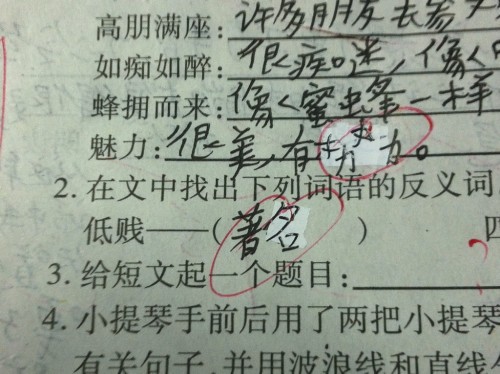 高朋满座：许多朋友去参
如痴如醉：很痴迷，像
蜂拥而来：像蜜蜂一样
魅力：很美，有力。
2.在文中找出下列词语的反义词
低贱——（著名）
3.给短文起一个题目：
4.小提琴手前后用了两把小提琴
有关句子，并用波浪线和直线